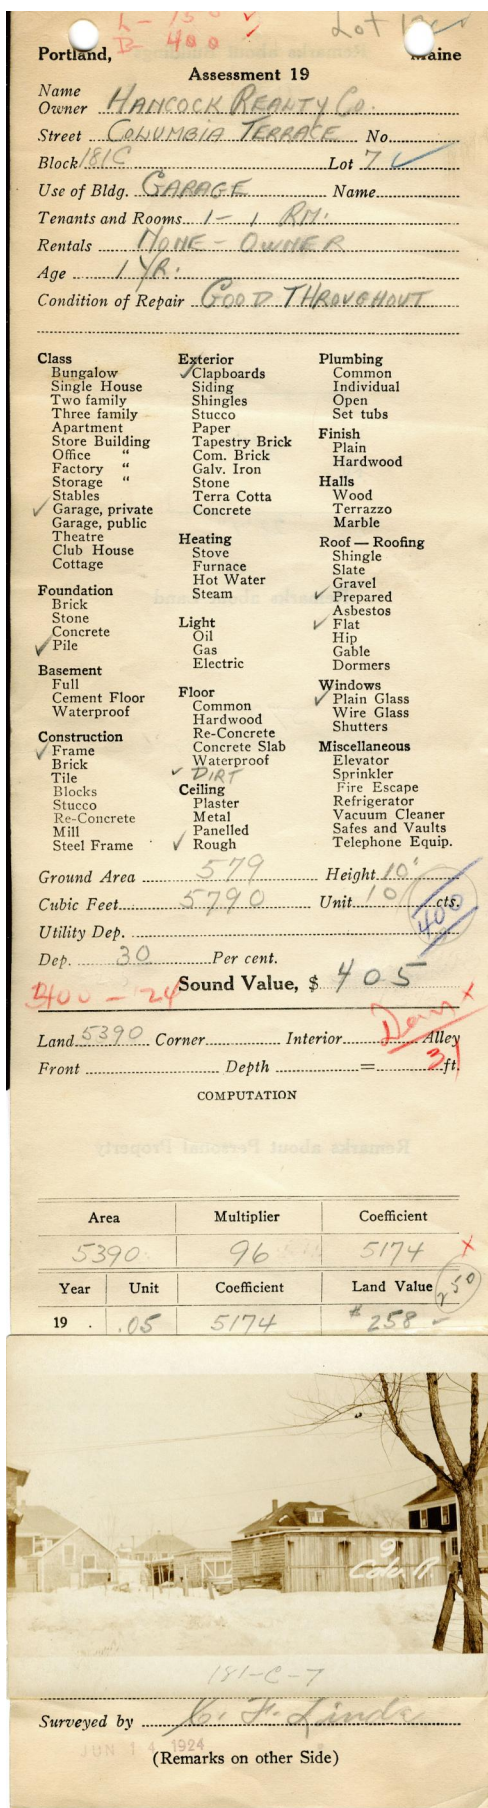 L-150
B-400
Lot
Portland, Maine
Assessment 19
Name
Owner HANCOCK REALTY CO.
Street COLUMBIA TERRACE No.
Block 181C Lot 7
Use of Bldg. GARAGE Name
Tenants and Rooms 1 - 1 RM.
Rentals NONE - OWNER
Age 1 YR.
Condition of Repair GOOD THROUGHOUT
Class
Bungalow
Single House
Two family
Three family
Apartment
Store Building
Office "
Factory "
Storage "
Stables
✓ Garage, private
Garage, public
Theatre
Club House
Cottage
Foundation
Brick
Stone
Concrete
✓ Pile
Basement
Full
Cement Floor
Waterproof
Construction
✓ Frame
Brick
Tile
Blocks
Stucco
Re-Concrete
Mill
Steel Frame
Exterior
✓ Clapboards
Siding
Shingles
Stucco
Paper
Tapestry Brick
Com. Brick
Galv. Iron
Stone
Terra Cotta
Concrete
Heating
Stove
Furnace
Hot Water
Steam
Light
Oil
Gas
Electric
Floor
Common
Hardwood
Re-Concrete
Concrete Slab
Waterproof
✓ DIRT
Ceiling
Plaster
Metal
Panelled
✓ Rough
Plumbing
Common
Individual
Open
Set tubs
Finish
Plain
Hardwood
Halls
Wood
Terrazzo
Marble
Roof — Roofing
Shingle
Slate
Gravel
✓ Prepared
Asbestos
✓ Flat
Hip
Gable
Dormers
Windows
✓ Plain Glass
Wire Glass
Shutters
Miscellaneous
Elevator
Sprinkler
Fire Escape
Refrigerator
Vacuum Cleaner
Safes and Vaults
Telephone Equip.
Ground Area 579 Height 10'
Cubic Feet 5790 Unit 10 cts.
400
Utility Dep.
Dep. 30 Per cent.
Sound Value, $ 405
B400 - '24
Land 5390 Corner Interior Alley
Front Depth = ft.
31
COMPUTATION
Area Multiplier Coefficient
5390 96 5174
Year Unit Coefficient Land Value
250
19 . .05 5174 $258
9
Colu. T.
181-C-7
Surveyed by C. F. Linde
JUN 14 1924
(Remarks on other Side)